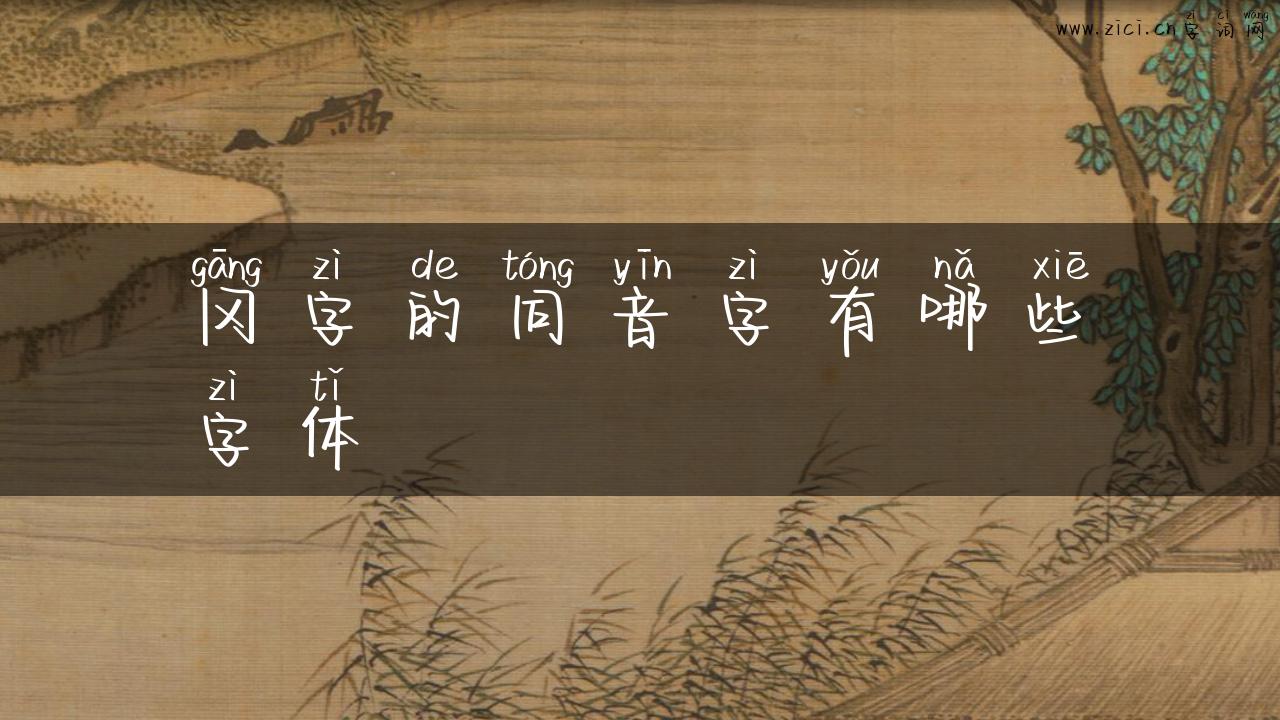 zì cí wǎng
www.zici.cn 字词网
gāng zì de tóng yīn zì yǒu nǎ xiē
冈字的同音字有哪些
zì tǐ
字体